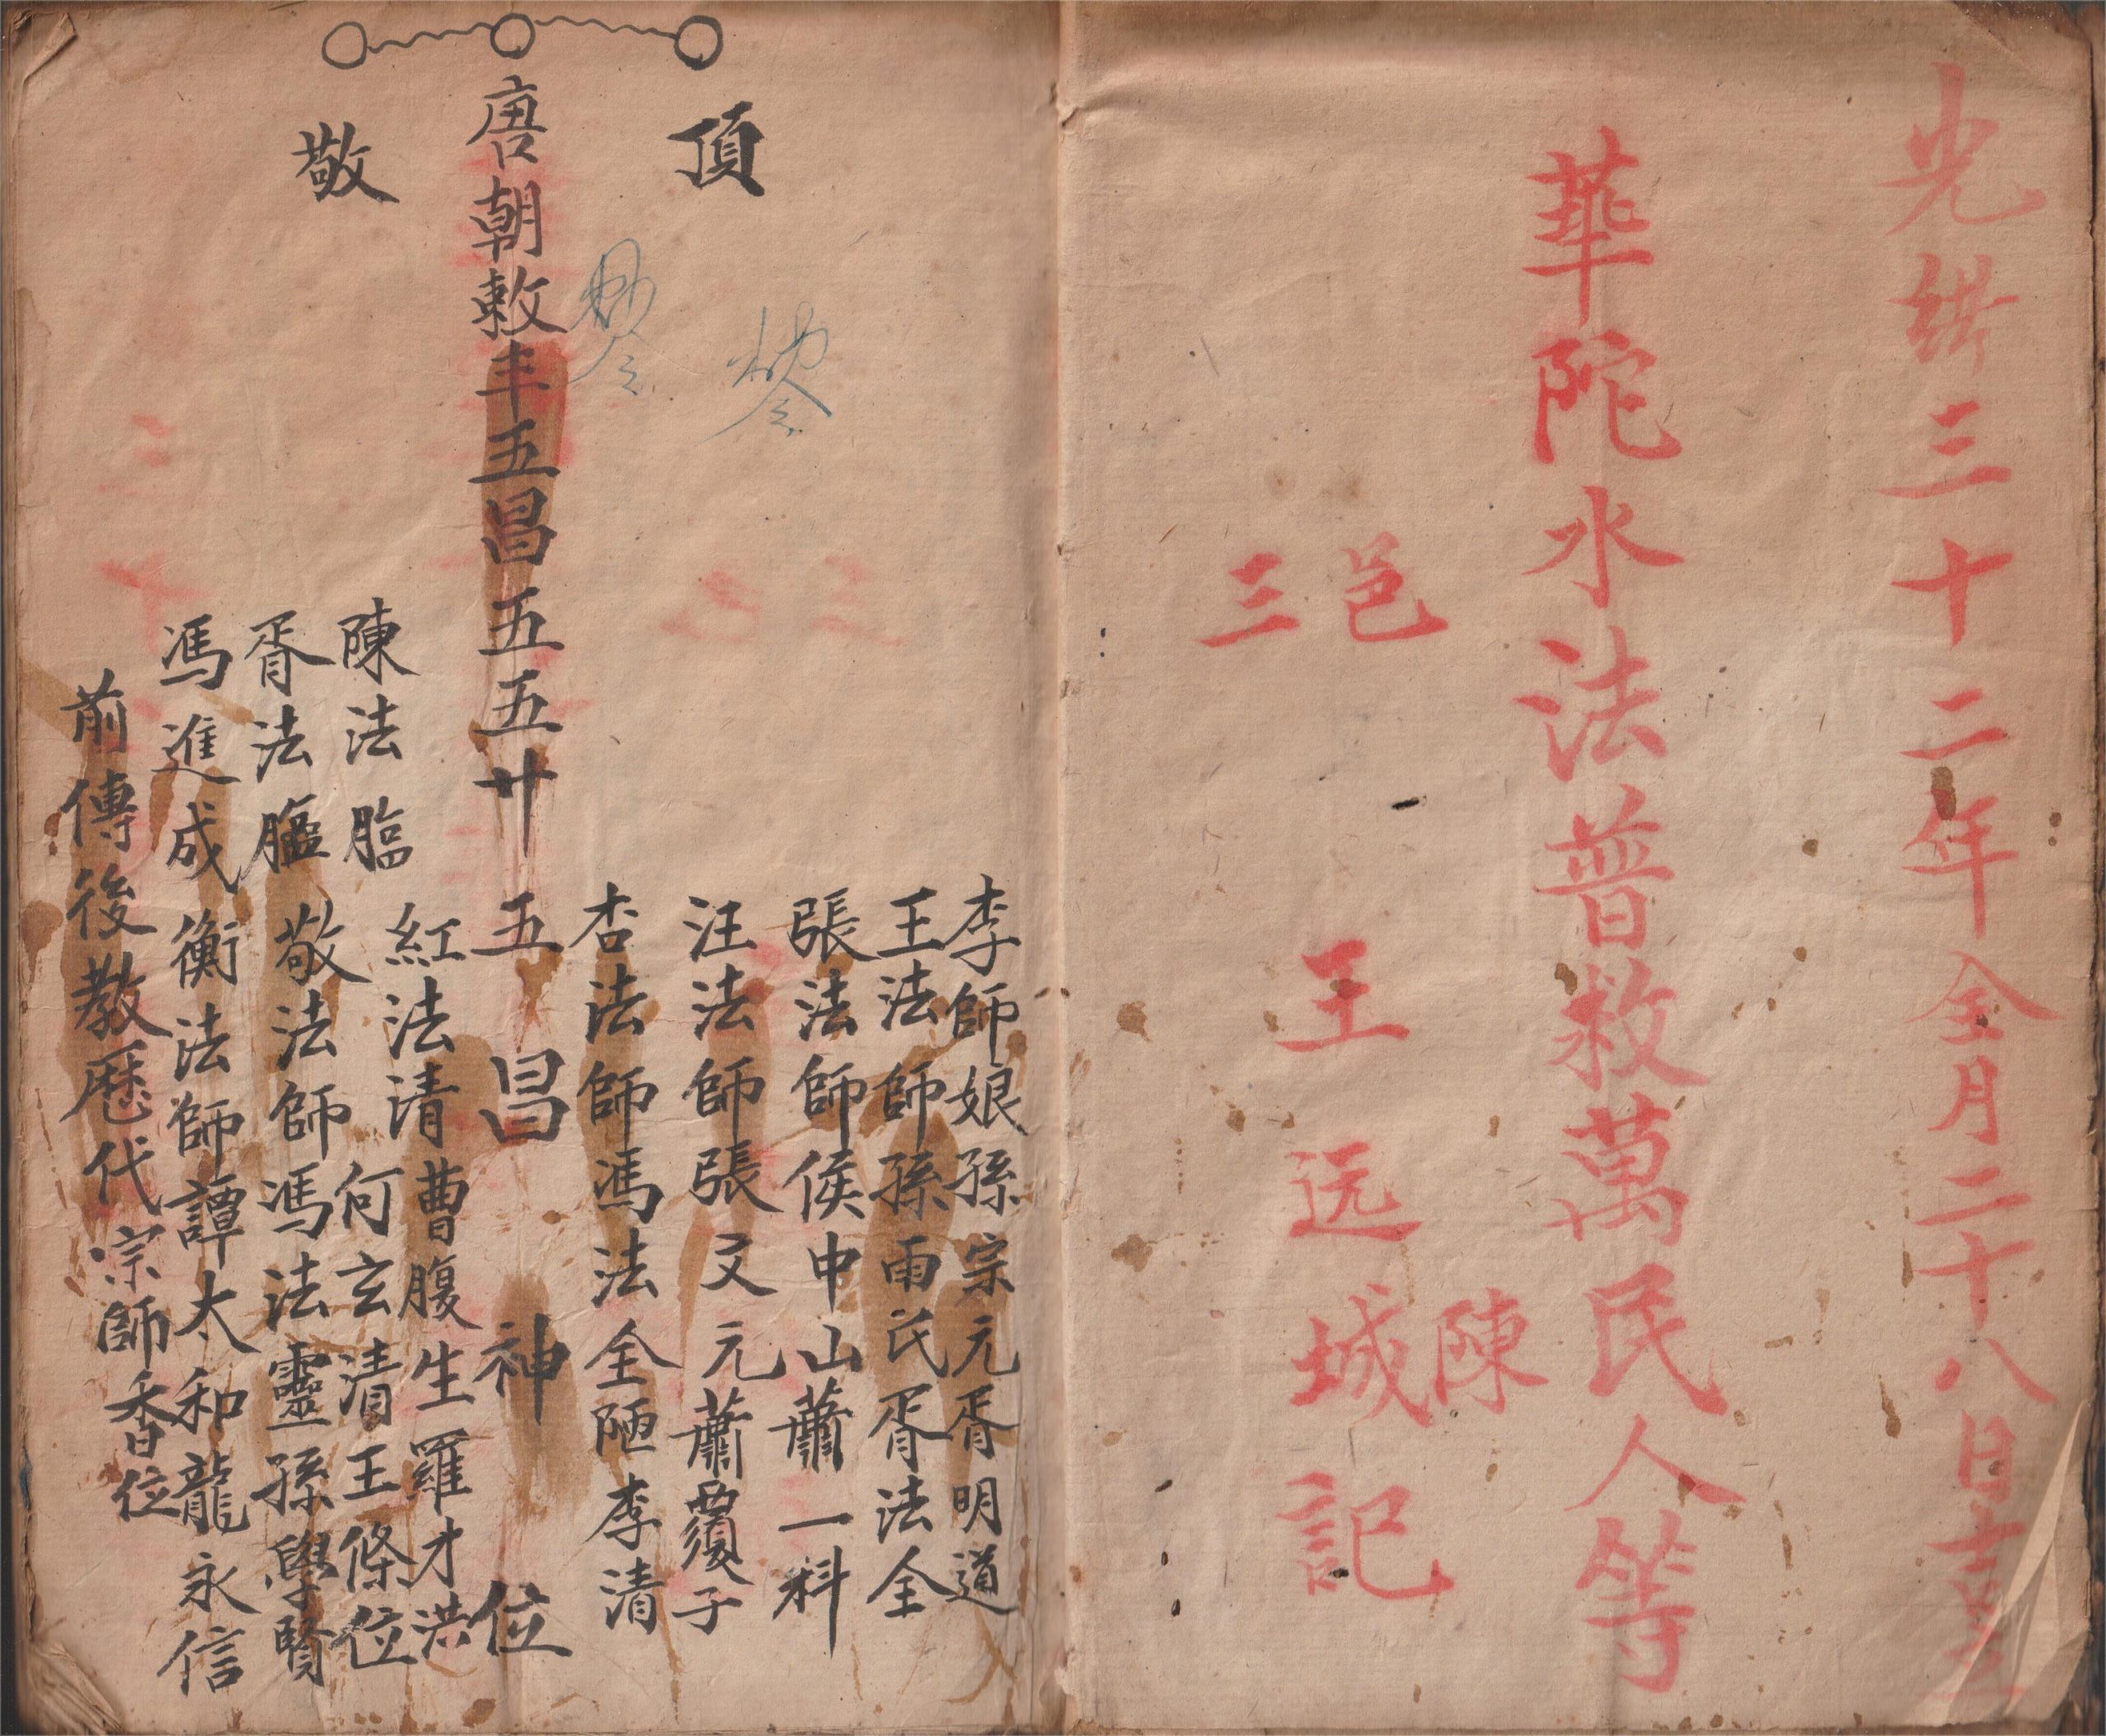 光緒三十二年全月二十八日吉
華陀水法普救萬民人等
陳
邑
三
王远城記
頂
敬
李師娘孫宗元胥明道
王法師孫雨氏胥法全
張法師侯中山蕭一科
汪法師張文元蕭覆子
杏法師馮法全陋李清
唐朝敕丰五昌五五廿五昌神位
紅法清曹腹生羅才洪
陳法臨何玄清王條位
胥法臨敬法師馮法靈孫學賢
馮進成衡法師譚太和龍永信
前傳後教歷代宗師香位